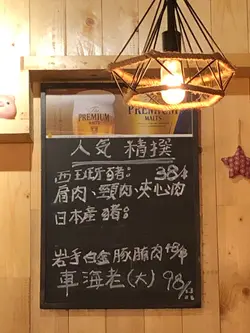 PREMIUM
MALTS
PREMIUM
MALTS
人気 精撰
西班牙豬: 38/串
肩肉、頸肉、夾心肉
日本産豬:
岩手白金豚腩肉 48/串
車海老(大) 98/